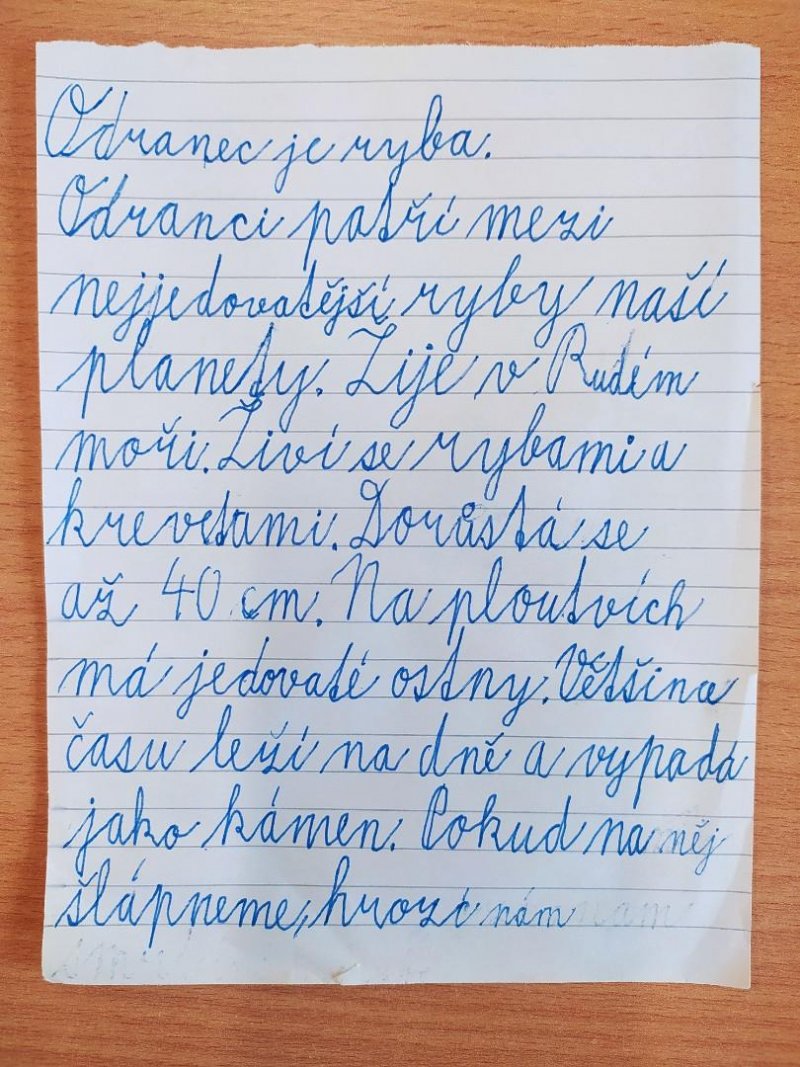 Odranec je ryba.
Odranci patří mezi
nejjedovatější ryby naší
planety. Žije v Rudém
moři. Živí se rybami a
krevetami. Dorůstá se
až 40 cm. Na ploutvích
má jedovaté ostny. Většina
času leží na dně a vypadá
jako kámen. Pokud na něj
šlápneme, hrozí nám